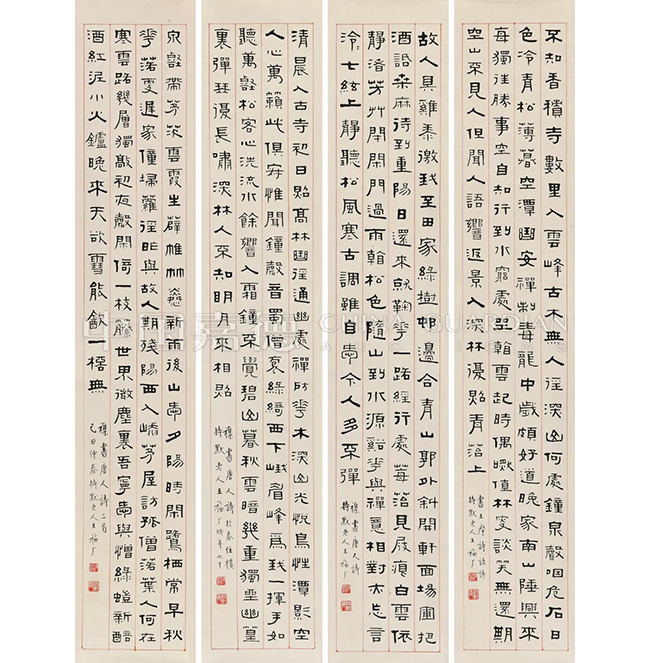 不知香積寺數里入雲峰古木無人徑深山何處鐘泉聲咽危石日
色冷青松薄暮空潭曲安禪制毒龍中歲頗好道晚家南山陲興來
每獨往勝事空自知行到水窮處坐看雲起時偶然值林叟談笑無還期
空山不見人但聞人語響返景入深林復照青苔上
持默老人王福厂
故人具雞黍邀我至田家綠樹邨邊合青山郭外斜開軒面場圃把
酒話桑麻待到重陽日還來就鞠花一路經行處莓苔見屐痕白雲依
靜渚芳艸閉閒門過雨看松色隨山到水源谿花與禪意相對太忘言
泠=七弦上靜聽松風寒古調雖自愛今人多不彈
襍書唐人詩
持默老人王福厂
清晨入古寺初日照高林曲徑通幽處禪房花木深山光悅鳥性潭影空
人心萬籟此俱寂惟聞鐘磬音蜀僧抱綠綺西下峨眉峰為我一揮手如
聽萬壑松客心洗流水餘響入霜鐘不覺碧山暮秋雲暗幾重獨坐幽篁
裏彈琴復長嘯深林人不知明月來相照
襍書唐人詩於春住樓
持默老人王福厂時年七十
泉壑帶茅茨雲霞生薜帷竹憐新雨後山愛夕陽時閒鷺棲常早秋
花落更遲家僮埽蘿徑昨與故人期殘陽西入崦茅屋訪孤僧落葉人何在
寒雲路幾層獨敲初夜磬閒倚一枝藤世界微塵裏吾寧愛與憎綠螘新醅
酒紅泥小火鑪晚來天欲雪能飲一桮無
襍書唐人詩三首
己丑仲春持默老人王福厂
中国嘉德
CHINA GUARDIAN